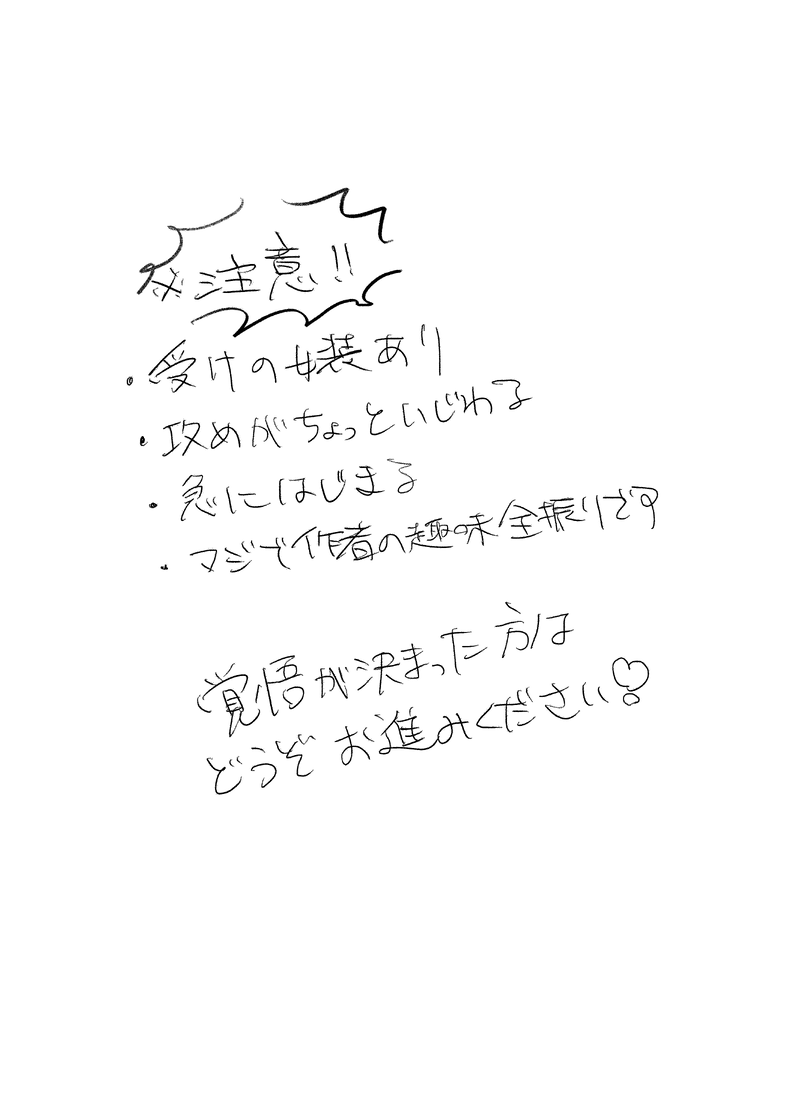 ※注意!!
・受けの女装あり
・攻めがちょっといじわる
・急にはじまる
・マジで作者の趣味全振りです
覚悟が決まった方は
どうぞお進みください♡